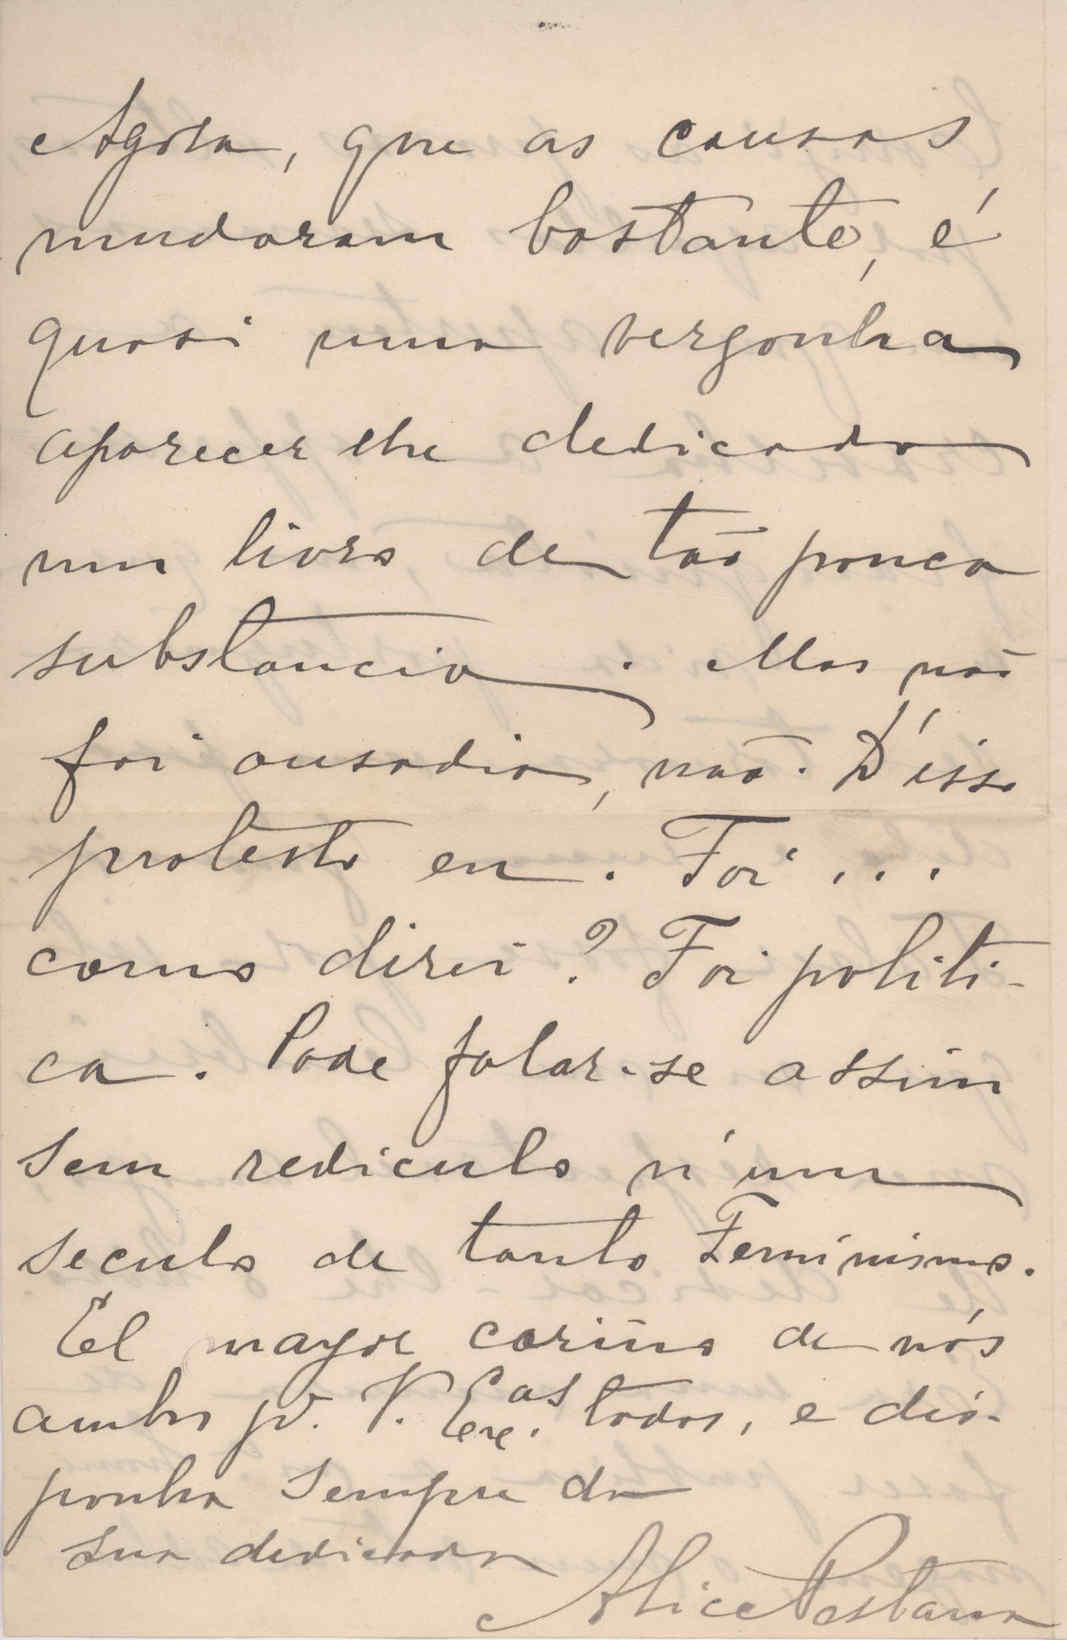 Agora, que as causas
mudaram bastante, é
quasi uma vergonha
aparecer lhe dedicado
um livro de tão pouca
substancia. Mas não
foi ousadia, não. D'isso
protesto eu. Foi...
como direi? Foi politi-
ca. Pode falar-se assim
sem rediculo n'um
seculo de tanto Feminismo.
El mayor cariño de nós
ambos pa. V. Exc.as todos, e dis-
ponha sempre da
sua dedicada
Alice Pestana